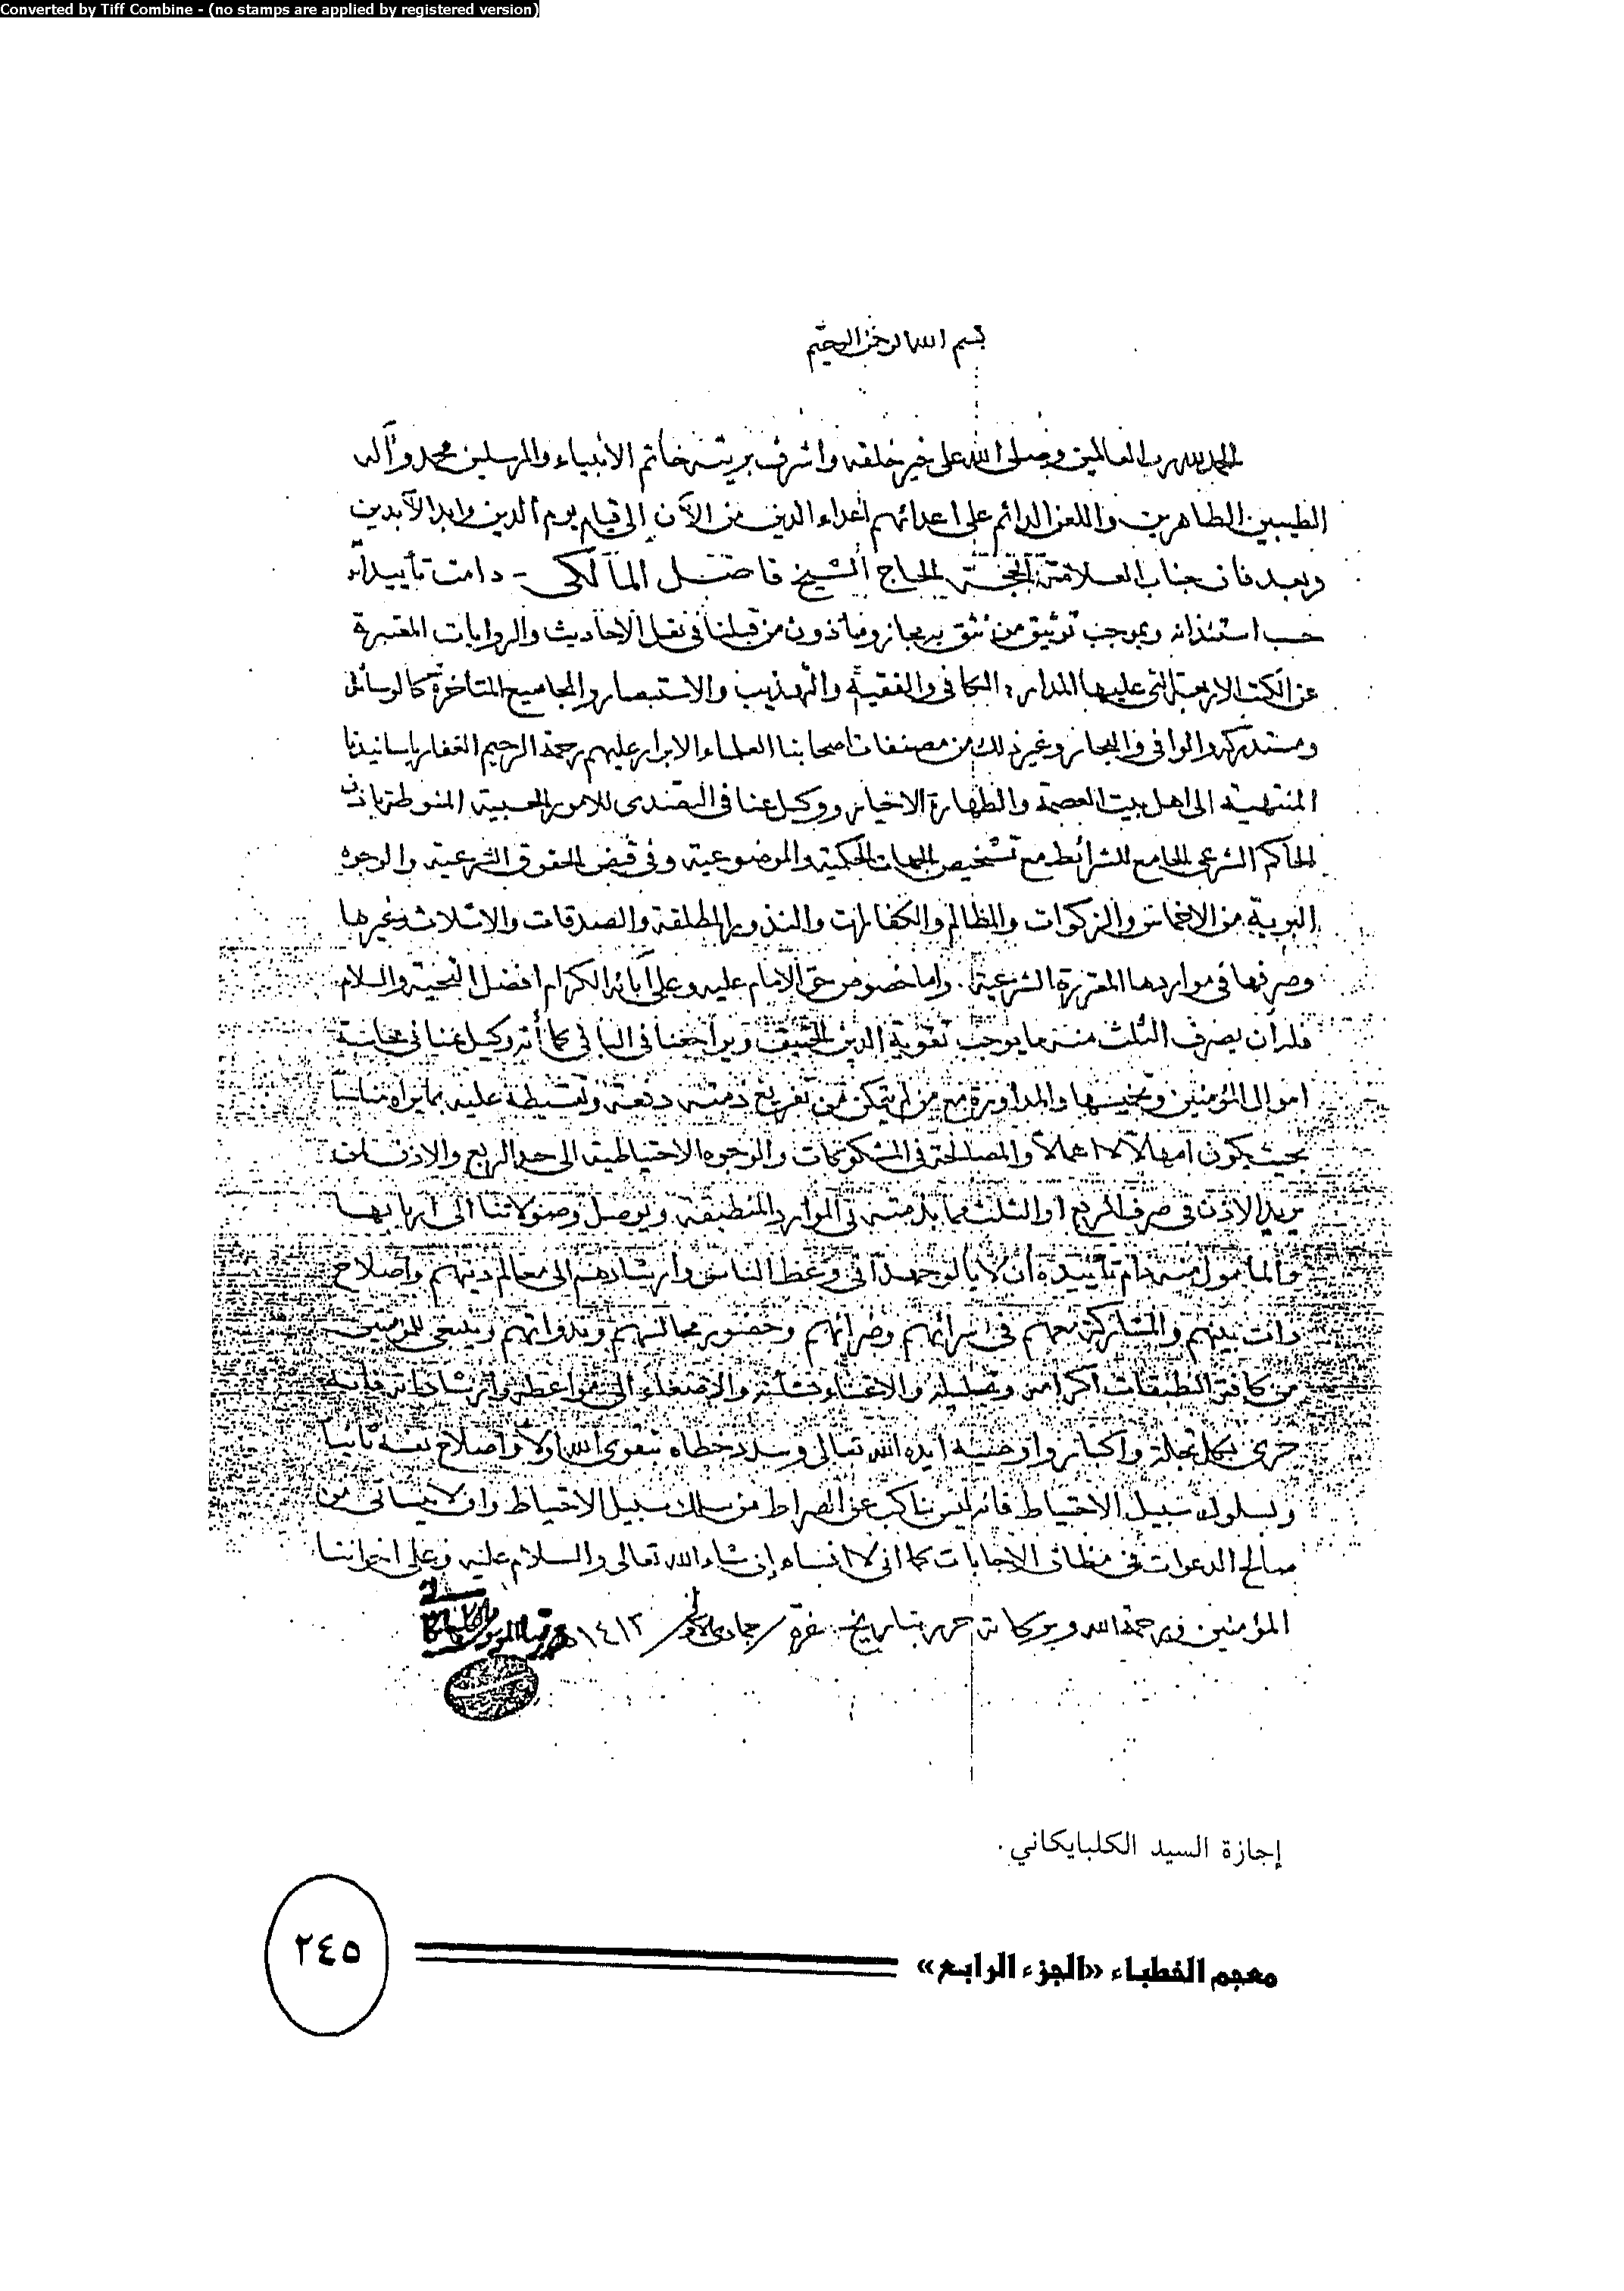 Converted by Tiff Combine - (no stamps are applied by registered version)
بسم الله الرحمن الرحيم
الحمد لله رب العالمين وصلى الله على خير خلقه واشرف بريته خاتم الانبياء والمرسلين محمد وآله
الطيبين الطاهرين واللعن الدائم على اعدائهم اعداء الدين من الآن الى قيام يوم الدين وابد الآبدين
وبعد فان جناب العلامة الحجة الحاج الشيخ فاضل المالكي - دامت تأييداته
حسب استئذانه وبموجب توثيق من نثق به مجاز ومأذون من قبلنا في نقل الاحاديث والروايات المعتبرة
عن الكتب الاربعة التي عليها المدار: الكافي والفقيه والتهذيب والاستبصار والمجاميع المتأخرة كالوسائل
ومستدركه والوافي والبحار وغير ذلك من مصنفات اصحابنا العلماء الابرار عليهم رحمة الرحيم الغفار باسانيدنا
المنتهية الى اهل بيت العصمة والطهارة الاخيار ووكيل عنا في التصدي للامور الحسبية المنوطة باذن
الحاكم الشرعي الجامع للشرائط مع تشخيص الجهات الحكمية والموضوعية وفي قبض الحقوق الشرعية والوجوه
البرية من الاخماس والزكوات والمظالم والكفارات والنذور المطلقة والصدقات والاثلاث وغيرها
وصرفها في مواردها المقررة الشرعية. واما خصوص حق الامام عليه وعلى آبائه الكرام افضل التحية والسلام
فله ان يصرف الثلث منه بما يوجب تقوية الدين الحنيف ويراجعنا في الباقي كما أنه وكيل عنا في محاسبة
اموال المؤمنين وتخميسها والمداورة مع من لم يتمكن من تفريغ ذمته دفعة وتقسيطه عليه بما يراه مناسبا
بحيث يكون امهالا لا اهمالا والمصالحة في المشكوكات والوجوه الاحتياطية الى حد الربع والاذن لمن
يريد الاذن في صرف الربع او الثلث مما بذمته في الموارد المنطبقة ويوصل وصولاتنا الى اربابها
والمأمول منه دام تأييده أن لا يألو جهدا في وعظ الناس وارشادهم الى معالم دينهم واصلاح
ذات بينهم والمشاركة معهم في سرائهم وضرائهم وحضور مجالسهم وندواتهم وينبغي للمؤمنين
من كافة الطبقات اكرامه وتبجيله والاعتناء بشأنه والاصغاء الى مواعظه وارشاداته فانه
حري بكل تجلة واكبار واوصيه ايده الله تعالى وسدد خطاه بتقوى الله اولا واصلاح نفسه ثانيا
وبسلوك سبيل الاحتياط فانه ليس بناكب عن الصراط من سلك سبيل الاحتياط وان لا ينساني من
صالح الدعوات في مظان الاجابات كما اني لا انساه إن شاء الله تعالى والسلام عليه وعلى اخواننا
المؤمنين ورحمة الله وبركاته حرر بتاريخ غرة / جمادى الاولى / ١٤١٣ هـ
إجازة السيد الكلبايكاني.
معجم الخطباء «الجزء الرابع»
٢٤٥